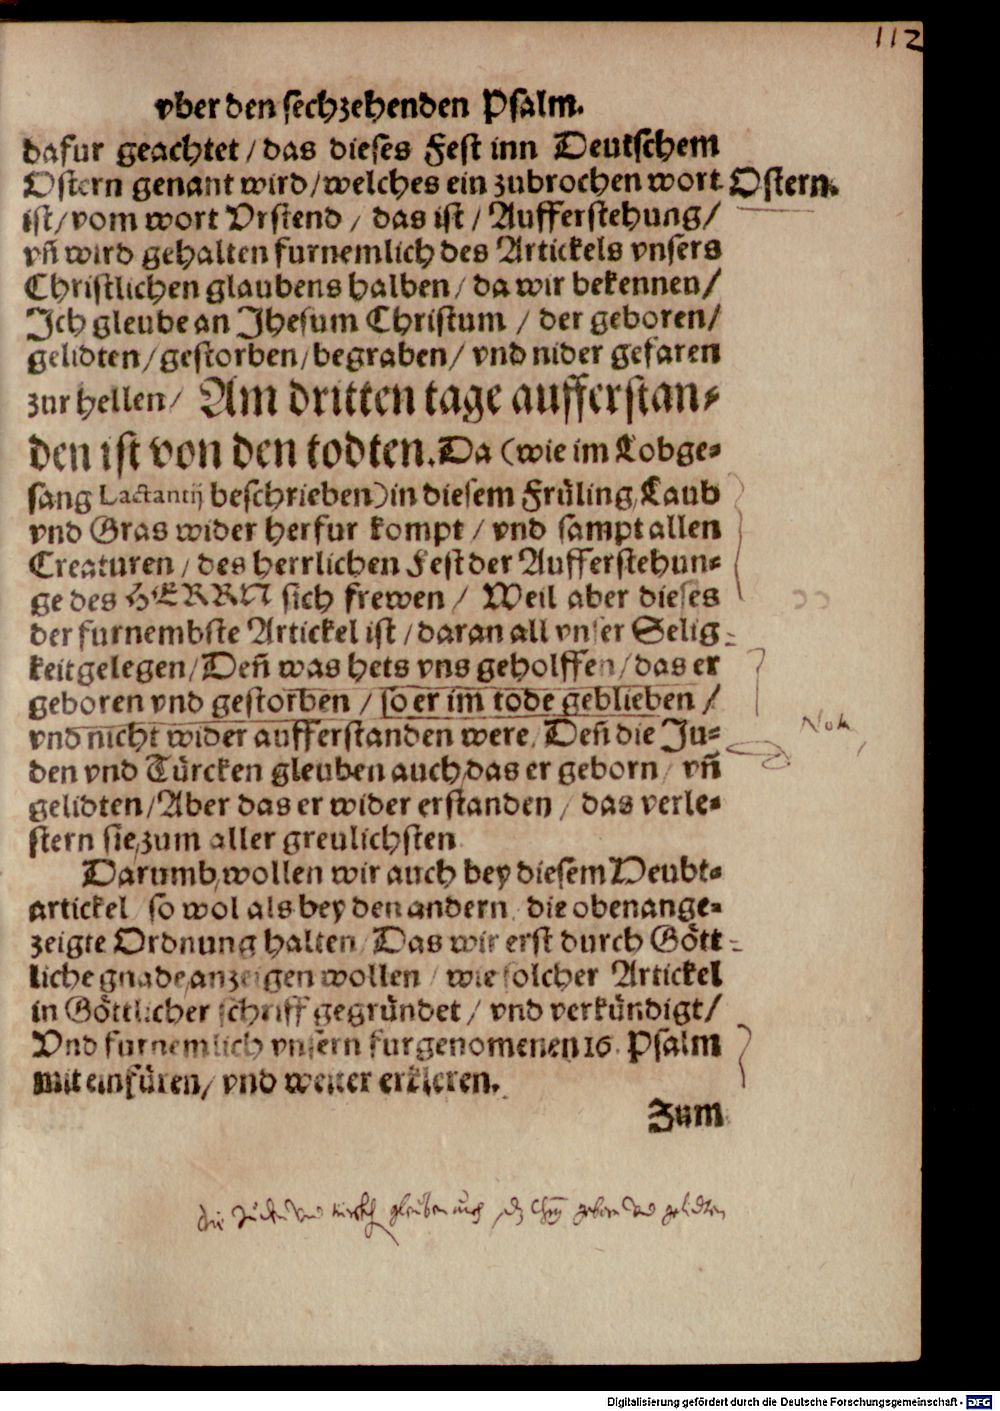 112
vber den sechzehenden Psalm.
dafur geachtet / das dieses Fest inn Deutschem
Ostern genant wird / welches ein zubrochen wort
Ostern.
ist / vom wort Vrstend / das ist / Aufferstehung /
vñ wird gehalten furnemlich des Artickels vnsers
Christlichen glaubens halben / da wir bekennen /
Ich gleube an Jhesum Christum / der geboren /
gelidten / gestorben / begraben / vnd nider gefaren
zur hellen / Am dritten tage aufferstan-
den ist von den todten. Da (wie im Lobge-
sang Lactantij beschrieben) in diesem Früling / Laub
vnd Gras wider herfur kompt / vnd sampt allen
Creaturen / des herrlichen Fest der Aufferstehun-
ge des HERRN sich frewen / Weil aber dieses
der furnembste Artickel ist / daran all vnser Selig-
keit gelegen / Deñ was hets vns geholffen / das er
geboren vnd gestorben / so er im tode geblieben /
vnd nicht wider aufferstanden were / Deñ die Jü-
Nota
den vnd Türcken gleuben auch / das er geborn / vñ
gelidten / Aber das er wider erstanden / das verle-
stern sie / zum aller greulichsten
Darumb / wollen wir auch bey diesem Heubt-
artickel / so wol als bey den andern / die obenange-
zeigte Ordnung halten / Das wir erst durch Gött-
liche gnade / anzeigen wollen / wie solcher Artickel
in Göttlicher schrifft gegründet / vnd verkündigt /
Vnd furnemlich vnsern furgenomenen 16. Psalm
mit einfüren / vnd weiter erkleren.
Zum
die Juden vnd gleuben auch geborn vnd gelidten
Digitalisierung gefördert durch die Deutsche Forschungsgemeinschaft - DFG